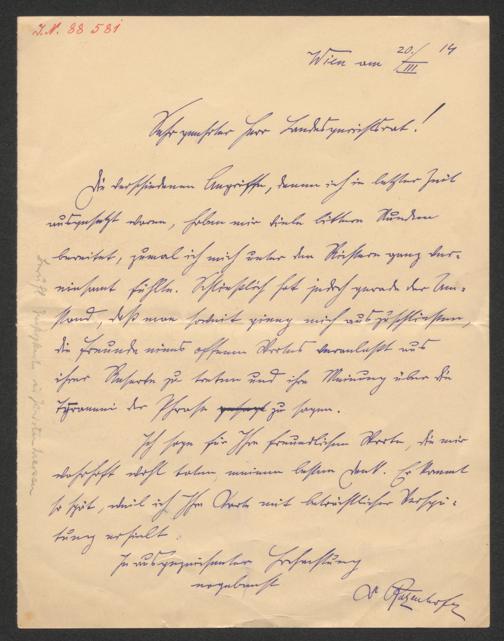 I.N. 88 581
Wien am 20./III 14
Sehr geehrter Herr Landesgerichtsrat!
Die verschiedenen Angriffe, denen ich in letzter Zeit
ausgesetzt waren, haben mir viele bittere Stunden
bereitet, zumal ich mich unter den Richtern ganz ver-
einsamt fühlte. Schließlich hat jedoch gerade der Um-
stand, daß man soweit gieng mich auszuschliessen,
die Freunde eines offenen Wortes veranlaßt aus
ihrer Reserve zu treten und ihre Meinung über die
Tyrannei der Phrase gesagt zu sagen.
Ich sage für Ihre freundlichen Worte, die mir
wahrhaft wohl taten, meinen besten Dank. Er kommt
so spät, weil ich Ihre Karte mit beträchtlicher Verspä-
tung erhielt.
In ausgezeichneter Hochachtung
ergebenst
Dr Ratzenhofer